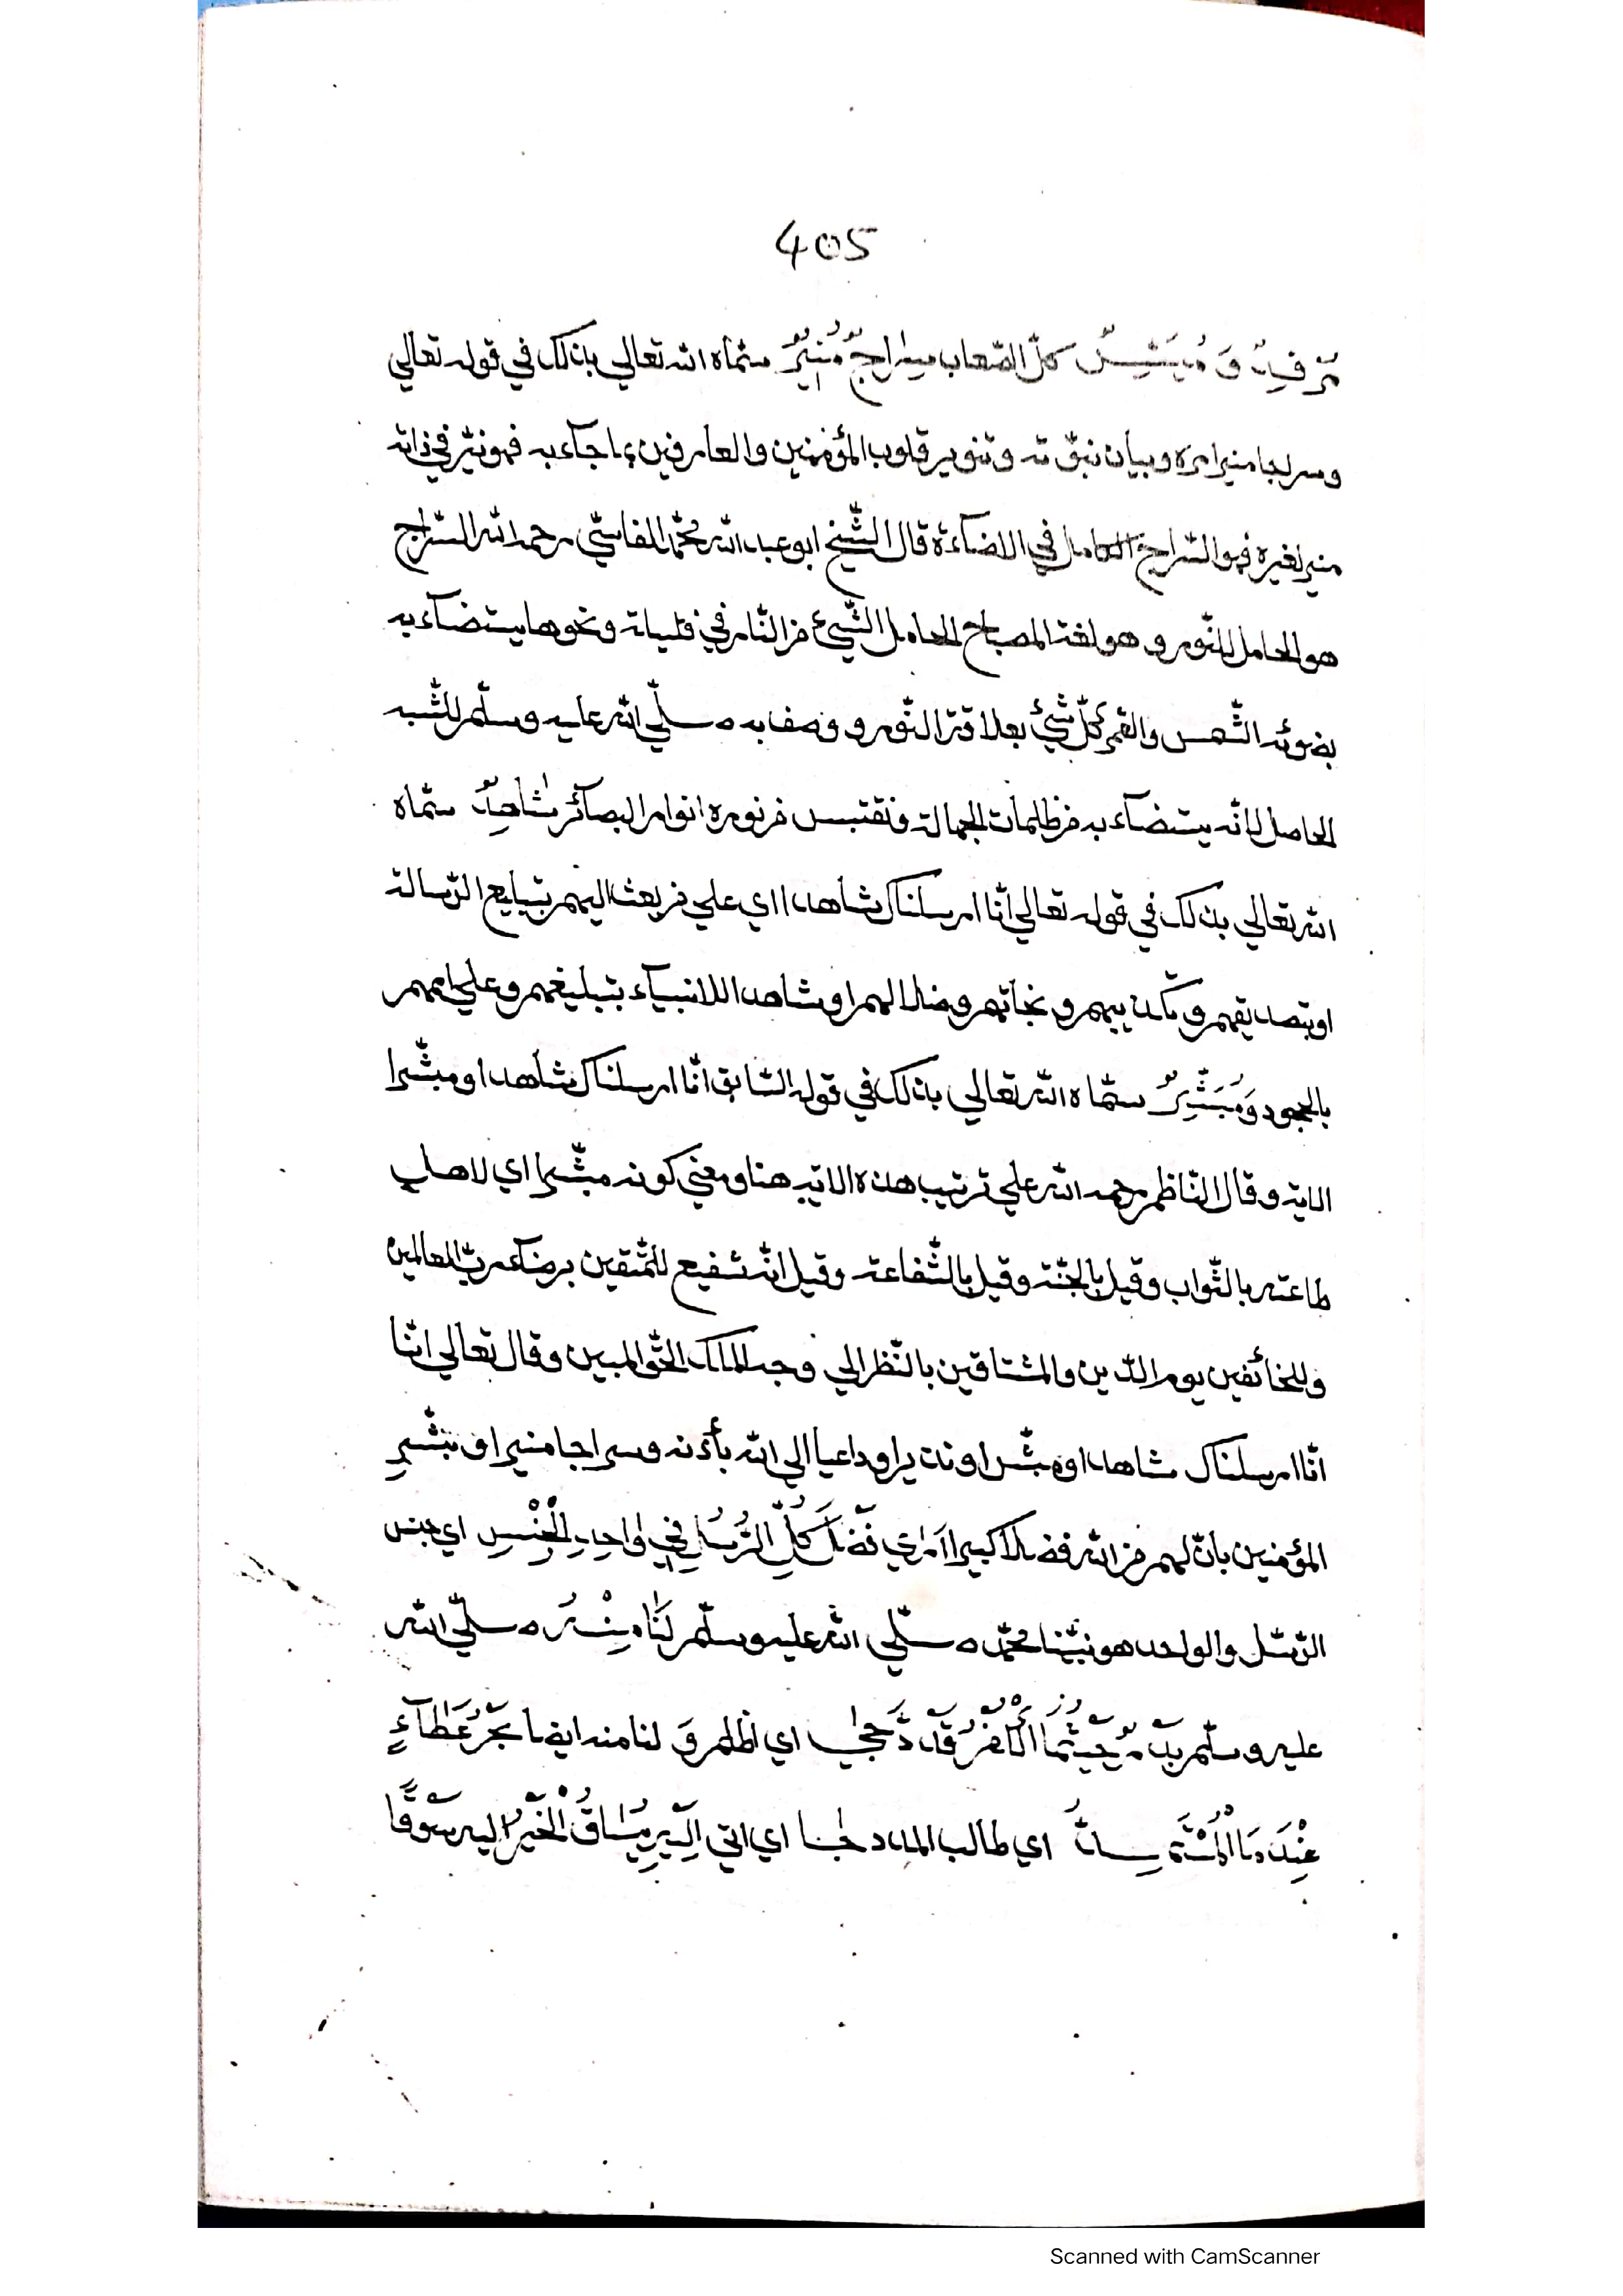 405
مَرْفِدٌ وَ مُيَسِّرٌ كلّ الصّعاب سِرَاجٌ مُنِيرٌ سمّاه الله تعالي بذالك في قوله تعالي
وسراجا منيرا مره وبيان نبوّته وتنوير قلوب المؤمنين والعارفين بما جآء به فهو نيّر في ذاته
منير لغيره فهو السّراج الكامل في الاضآءة قال الشّيخ ابو عبد الله محمّد الفاسيّ رحمه الله السّراج
هو الحامل للنّور و هو لغة المصباح الحامل الشّيئ من النّار في فتيلة ونحوها يستضآء به
بضوئه الشّمس والقمر كلّ شيئ بعلاقة النّور و وصف به صلّي الله عليه وسلّم للشّبه
الحاصل لانّه يستضآء به من ظلمات الجهالة وتقتبس من نوره انوار البصآئر شَاهِدٌ سمّاه
الله تعالي بذلك في قوله تعالي انّا ارسلناك شاهدا اي علي من بعث اليهم بتبليغ الرّسالة
او بتصديقهم وتكذيبهم و نجاتهم وضلالهم او شاهدا للانبيآء بتبليغهم وعلي اممهم
بالجحود وَمُبَشِّرٌ سمّاه الله تعالي بذالك في قوله السّابق انّا ارسلناك شاهدا ومبشّرا
الاية وقال النّاظم رحمه الله علي ترتيب هذه الاية هنا ومعني كونه مبشّرا اي لاهل
طاعته بالثّواب وقيل بالجنّة وقيل بالشّفاعة وقيل انّه شفيع للمتّقين برضآء ربّ العالمين
وللخائفين يوم الدّين والمشتاقين بالنّظر الي وجه الملك الحقّ المبين وقال تعالي انّا
انّا ارسلناك شاهدا ومبشّرا ونذيرا وداعيا الي الله بأذنه وسراجا منيرا و بشّر
المؤمنين بانّ لهم من الله فضلا كبيرا اَرٰي فَضْلَ كُلِّ الرُّسْلِ فِي وٰاحِدِ الْجِنْسِ اي جنس
الرّسل والواحد هو نبيّنا محمّد صلّي الله عليه وسلّم لَنَا مِنْهُ صلّي الله
عليه وسلّم بَدْرٌ حَيْثُمَا الْكُفْرُ قَدْ دَجٰي اي اظلم وَ لنا منه ايضا بَحْرُ عَطَآءٍ
عِنْدَمَا الْمُسْتَمِدُّ اي طالب المدد جٰا اي اتي اِلَيْهِ يُسَاقُ الْخَيْرُ اليه سَوْقًا
Scanned with CamScanner